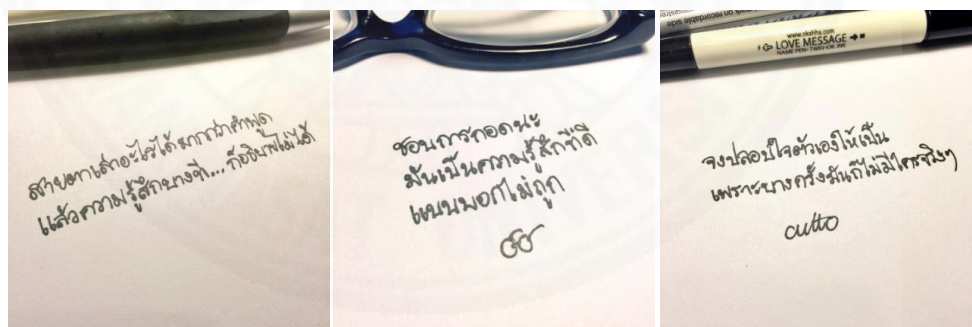 สายตาเล่าอะไรได้มากกว่าคำพูด
แล้วความรู้สึกบางที...ก็อธิบายไม่ได้
ชอบการกอดนะ
มันเป็นความรู้สึกที่ดี
แบบบอกไม่ถูก
www.nkshha.com
LOVE MESSAGE
NAME PEN•TWIN•OIL INK
จงปลอบใจตัวเองให้เป็น
เพราะบางครั้งมันก็ไม่มีใครจริงๆ
cutto